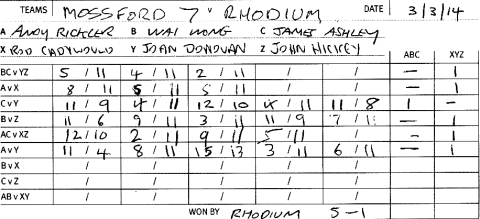 TEAMS MOSSFORD 7 v RHODIUM DATE 3/3/14
A ANDY RICKLER B WAI WONG C JAMES ASHLEY
X ROD CADYWOULD Y JOHN DONOVAN Z JOHN HICKEY ABC XYZ
BCvYZ 5 / 11 4 / 11 2 / 11 / / — 1
AvX 8 / 11 5 / 11 5 / 11 / / — 1
CvY 11 / 9 4 / 11 12 / 10 4 / 11 11 / 8 1 -
BvZ 11 / 6 9 / 11 3 / 11 11 / 9 7 / 11 — 1
ACvXZ 12/10 2 / 11 9 / 11 5/11 / - 1
AvY 11 / 4 8 / 11 15 / 13 3 / 11 6 / 11 — 1
BvX / / / / /
CvZ / / / / /
ABvXY / / / / /
WON BY RHODIUM 5-1